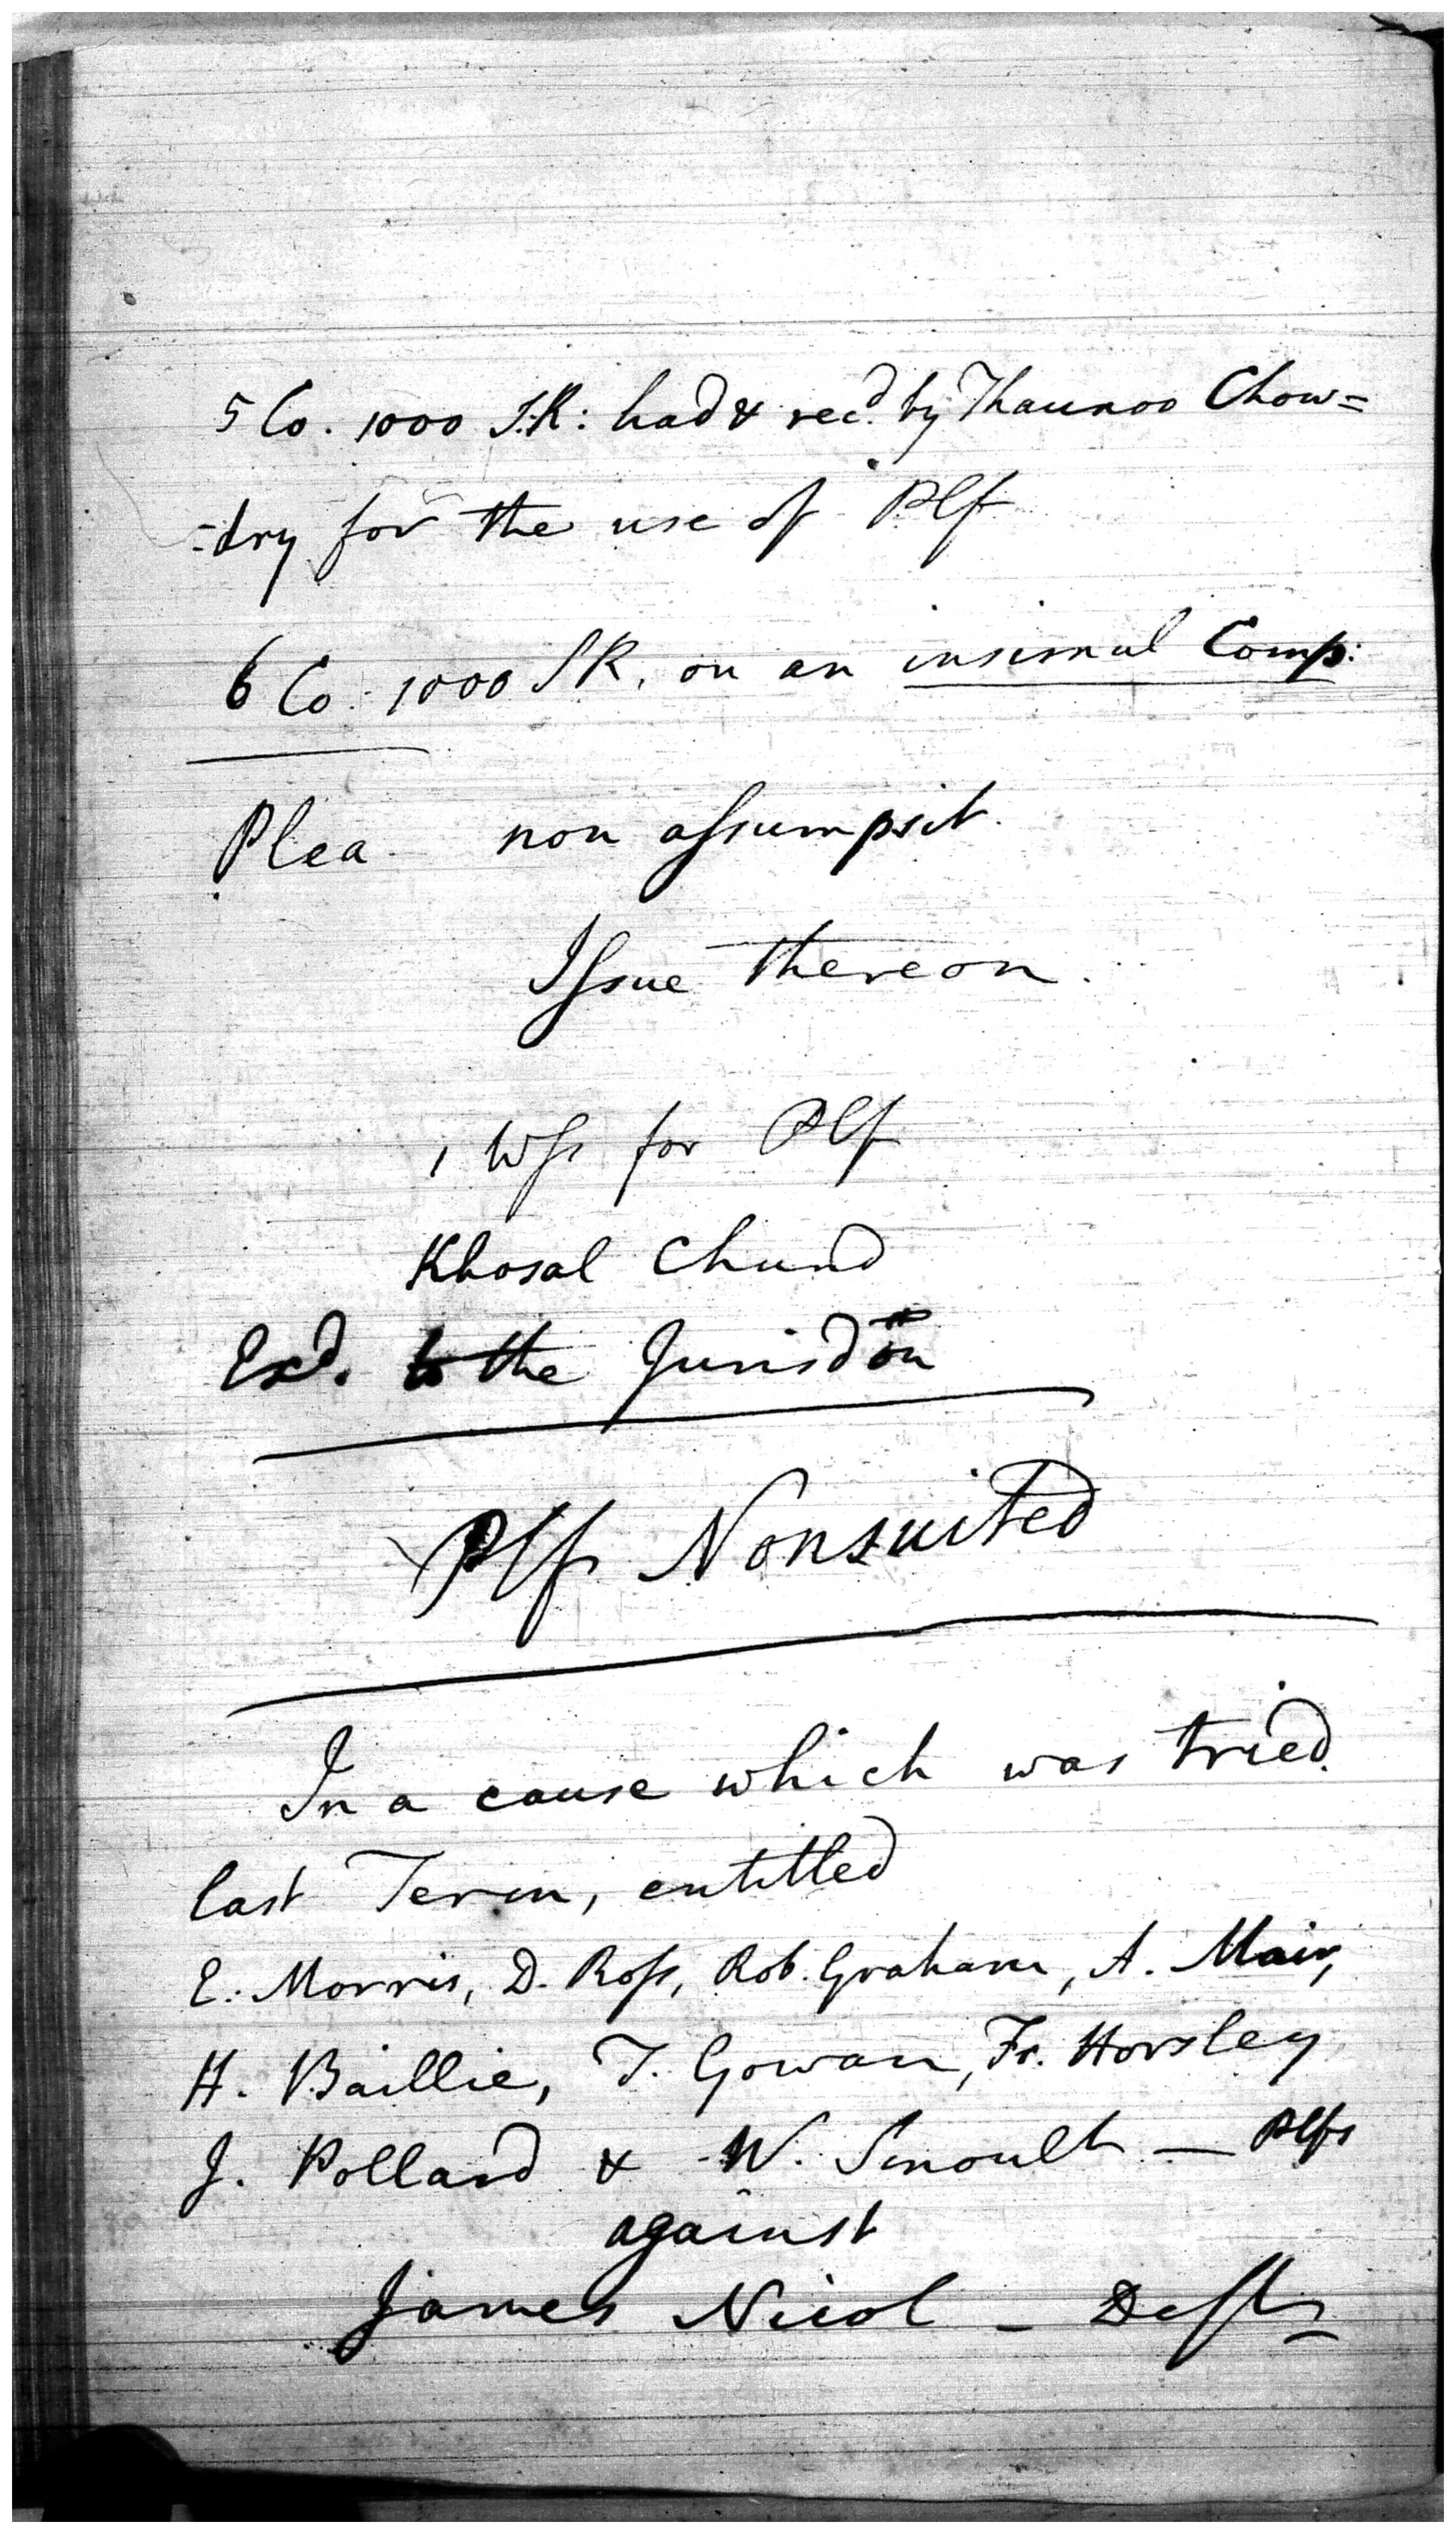 5 Co. 1000 S.R: had & recd. by Thaunoo Chow=
-dry for the use of Plf
6 Co: 1000 SR. on an insimul Comp:
Plea non assumpsit.
Issue thereon.
1 Wss for Plf
Khosal Chund
Exd. to the Jurisdon
Plf Nonsuited
In a cause which was tried
last Term, entitled
E. Morris, D. Ross, Rob. Graham, A. Mair,
H. Baillie, T. Gowan, Fr. Horsley
J. Pollard & W. Smoult — Plfs
against
James Nicol - Deft